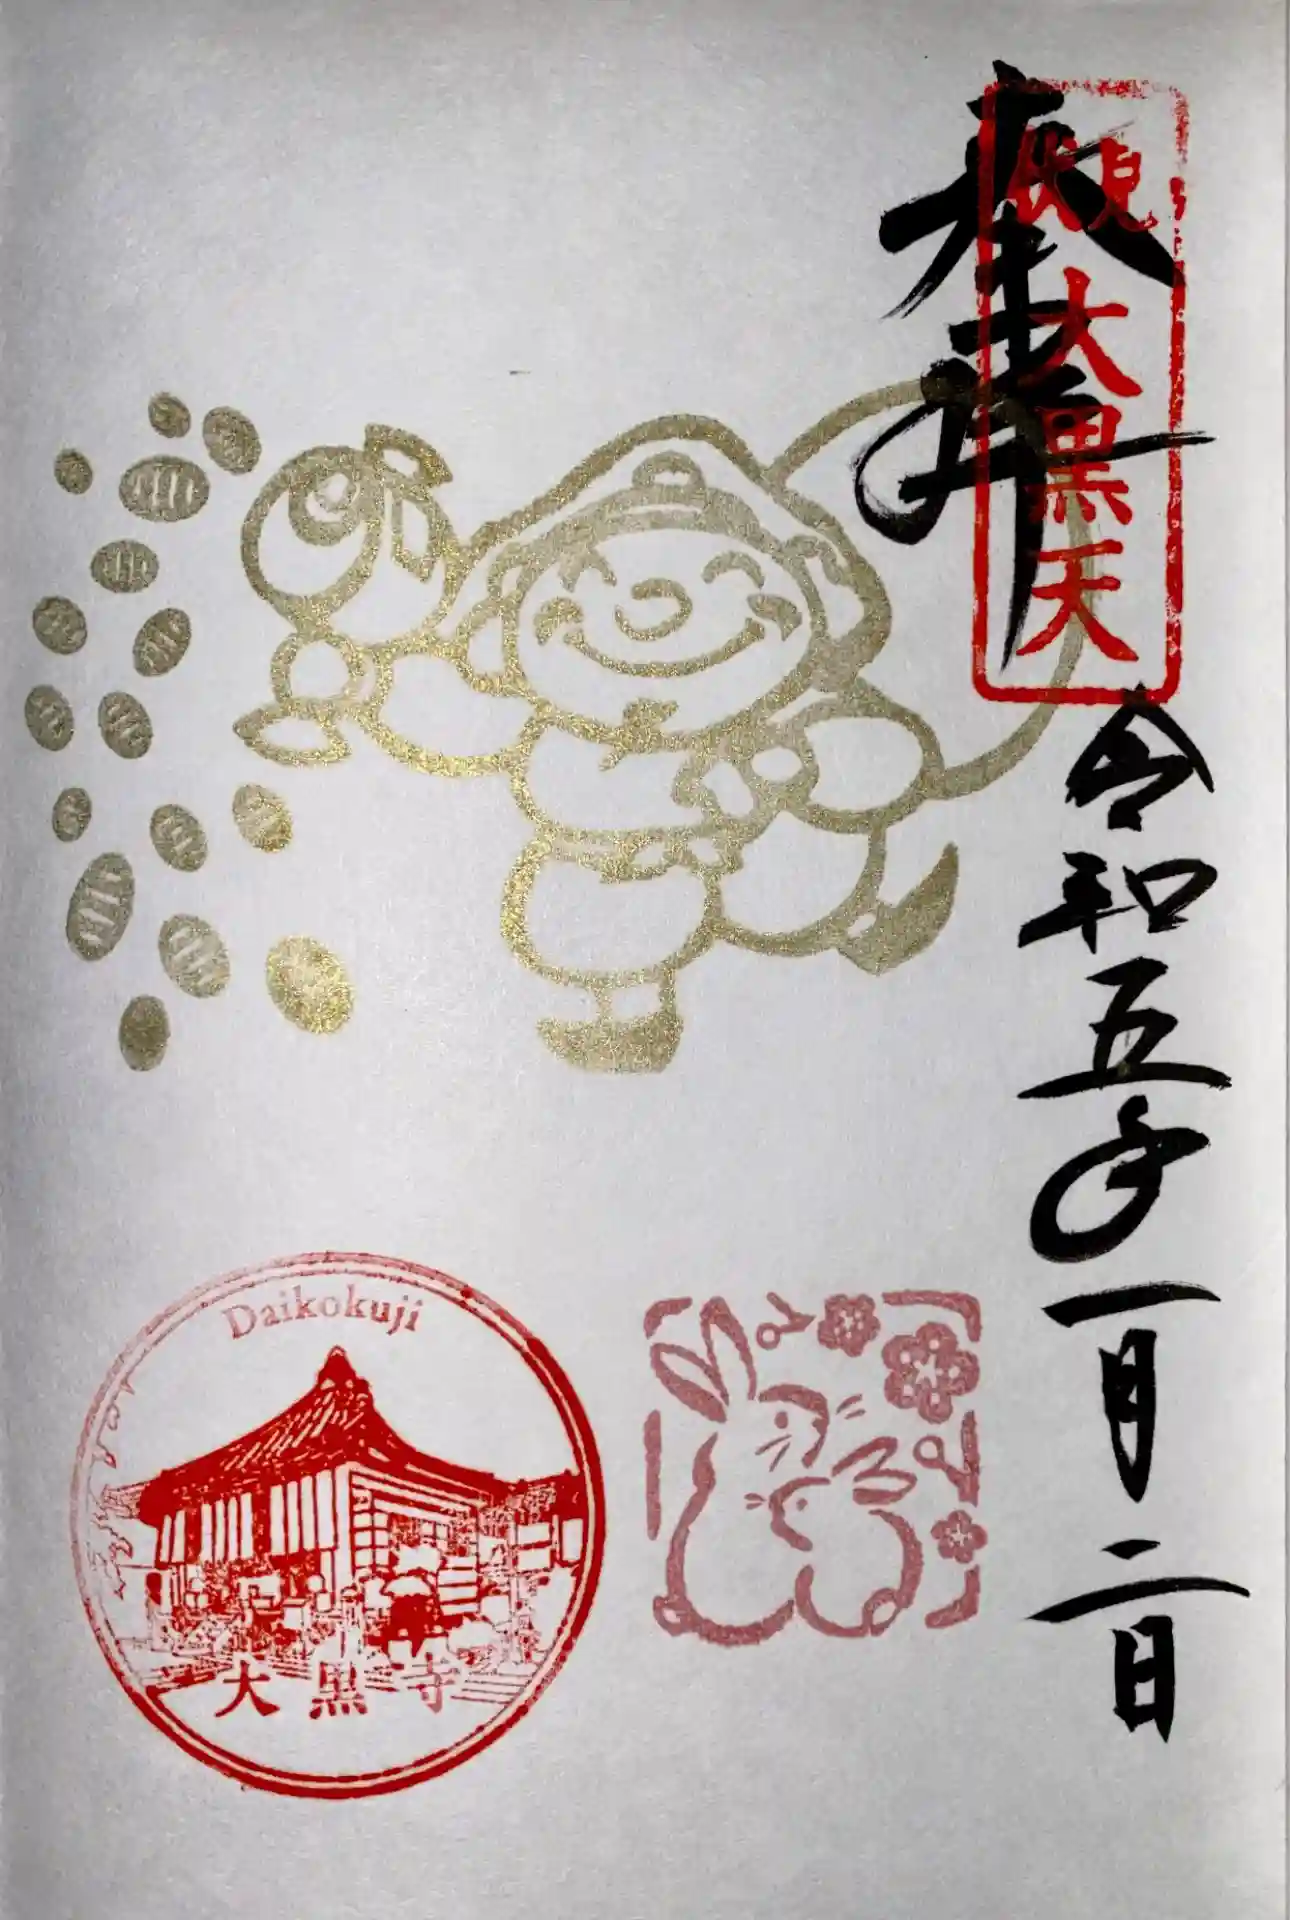 奉拝
伏見
大黒天
令和五年一月二日
Daikokuji
大黒寺